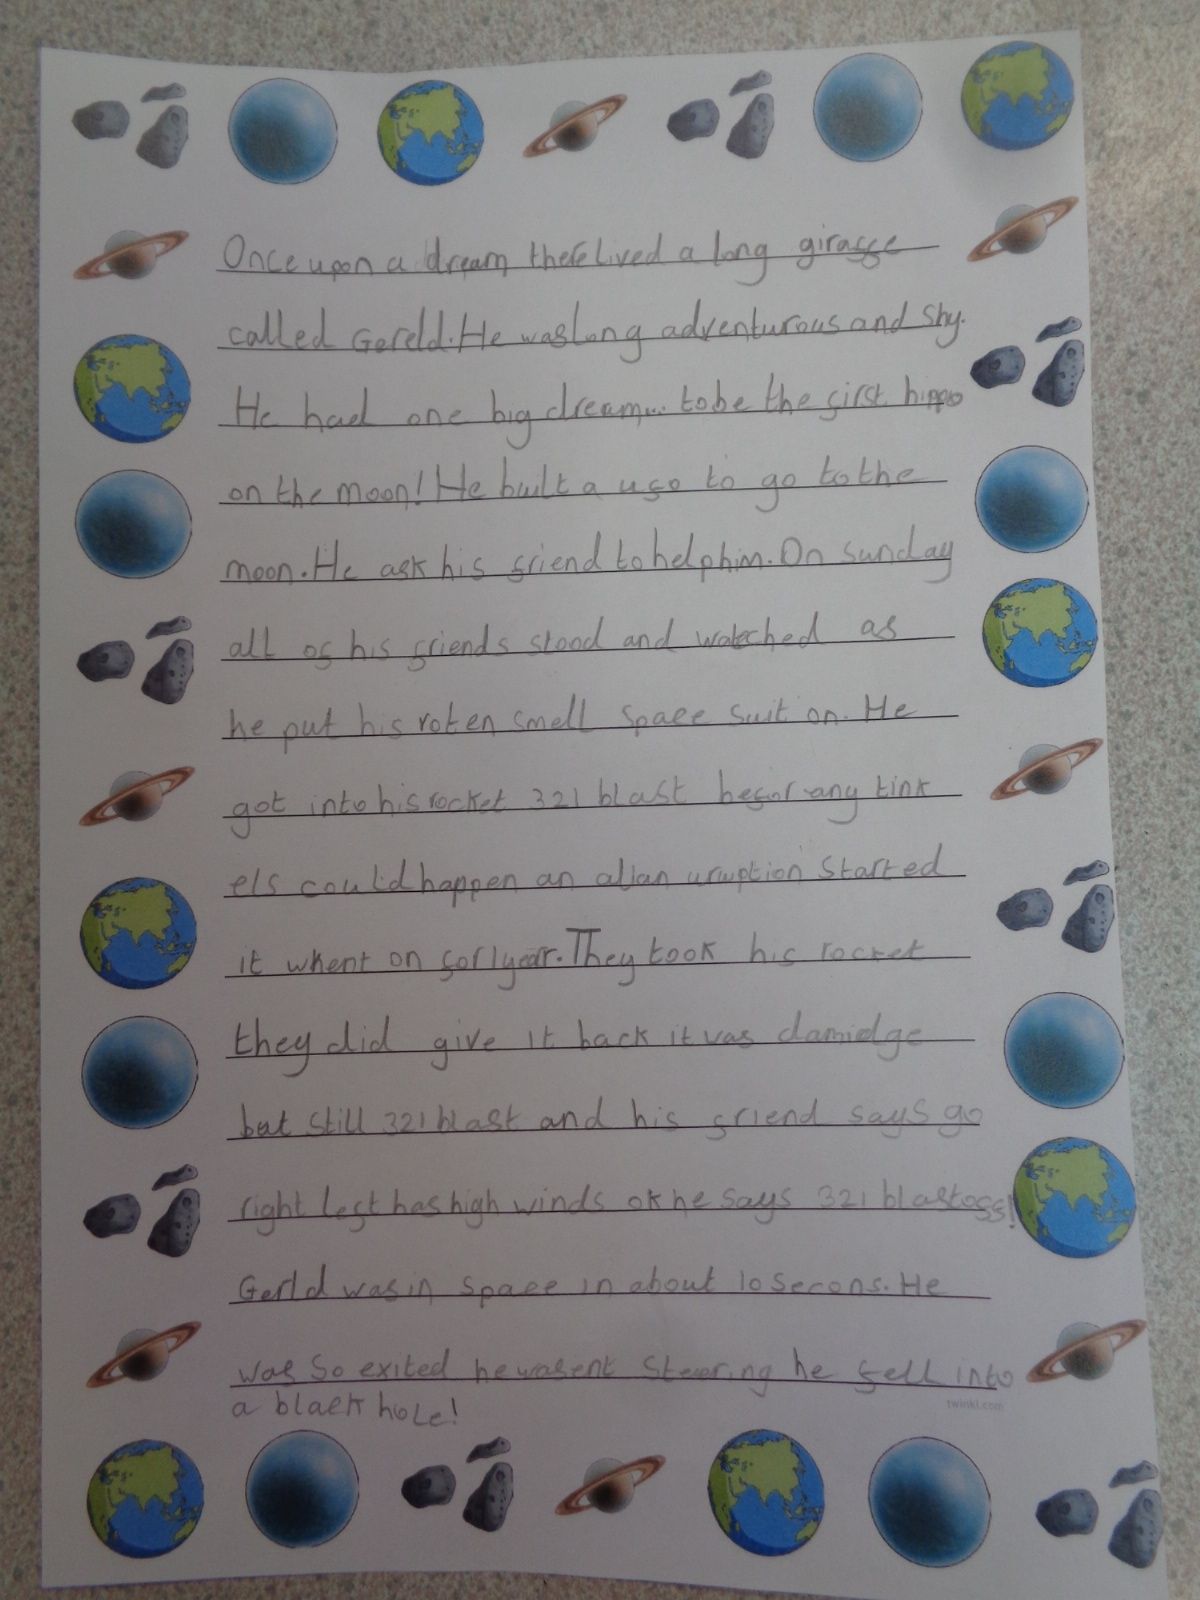 Once upon a dream there lived a long giraffe
called Gereld. He was long adventurous and shy.
He had one big dream... to be the first hippo
on the moon! He built a ufo to go to the
moon. He ask his friend to help him. On sunday
all of his friends stood and watched as
he put his roten smell space suit on. He
got into his rocket 321 blast befor any tink
els could happen an alian uruption started
it whent on for 1 year. They took his rocket
they did give it back it was damidge
but still 321 blast and his friend says go
right left has high winds ok he says 321 blastoff!
Gerld was in space in about 10 secons. He
was so exited he wasent steering he fell into
a black hole!
twinkl.com